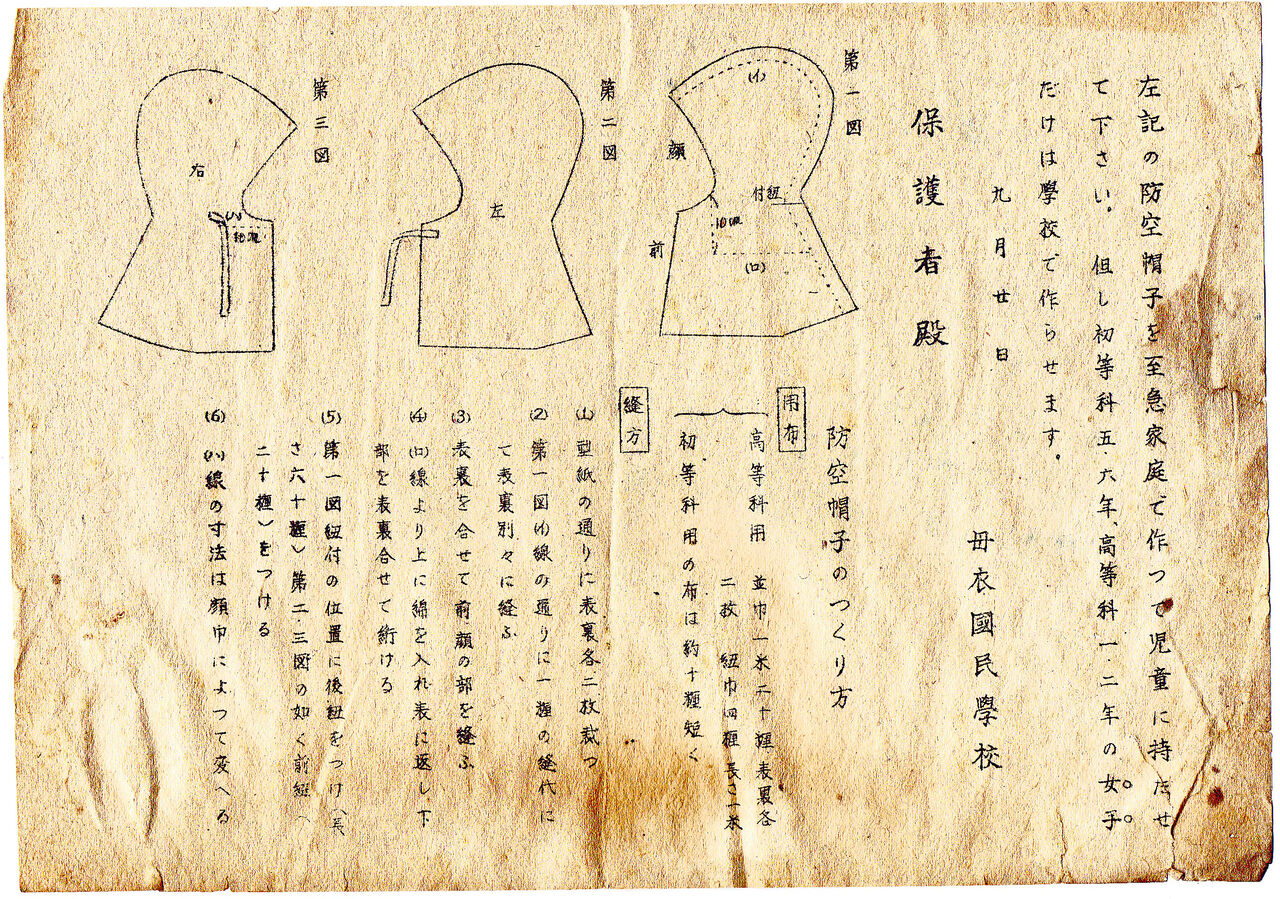 左記の防空帽子を至急家庭で作つて児童に持たせ
て下さい。但し初等科五・六年、高等科一・二年の女子
だけは學校で作らせます。
九月廿日
毌衣國民學校
保護者殿
防空帽子のつくり方
用布
高等科用 並巾一米二十糎表裏各
二枚 紐巾四糎 長さ一米
初等科用の布は約十糎短く
縫方
(1) 型紙の通りに表裏各二枚裁つ
(2) 第一図(イ)線の通りに一糎の縫代に
て表裏別々に縫ふ
(3) 表裏を合せて前顔の部を縫ふ
(4) (ロ)線より上に綿を入れ表に返し下
部を表裏合せて絎ける
(5) 第一図紐付の位置に後紐をつけ(長
さ六十糎)第二・三図の如く前紐(
二十糎)をつける
(6) (ハ)線の寸法は顔巾によつて変へる
第一図
(イ)
顔
付紐
前
(ロ)
第二図
左
第三図
右
(ハ)